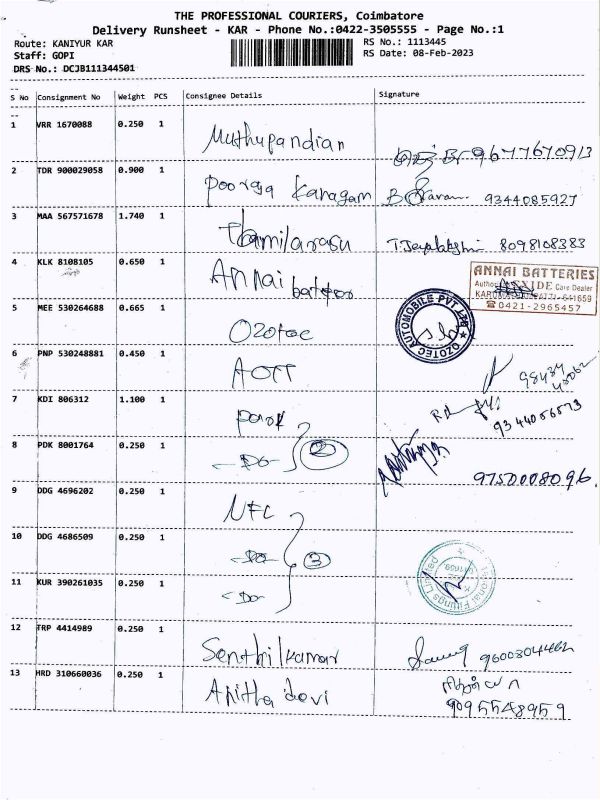 THE PROFESSIONAL COURIERS, Coimbatore
Delivery Runsheet - KAR - Phone No.:0422-3505555 - Page No.:1
Route: KANIYUR KAR
RS No.: 1113445
Staff: GOPI
RS Date: 08-Feb-2023
DRS No.: DCJB111344501
S No Consignment No Weight PCS Consignee Details Signature
1 VRR 1670088 0.250 1 Muthupandian 9677670913
2 TDR 900029058 0.900 1 Pooraja Kanagam 9344085927
3 MAA 567571678 1.740 1 Thamilarasu T.Jeyalakshmi 8098108383
4 KLK 8108105 0.650 1 Annai
ANNAI BATTERIES
EXIDE Care Dealer
641659
☎0421-2965457
5 MEE 530264688 0.665 1 Ozotec
OZOTEC AUTOMOBILE PVT LTD
6 PNP 530248881 0.450 1 AOTT
7 KDI 806312 1.100 1
8 PDK 8001764 0.250 1 -Do- 2 9750008096.
9 DDG 4696202 0.250 1 NFC
10 DDG 4686509 0.250 1 -Do- 3
11 KUR 390261035 0.250 1 -Do-
Fittings Limited
12 TRP 4414989 0.250 1 Senthilkumar 9600304462
13 HRD 310660036 0.250 1 Anitha devi
9095548959